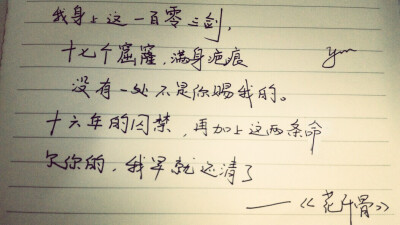 我身上这一百零三剑，
十七个窟窿，满身疤痕
没有一处不是你赐我的。
十六年的囚禁，再加上这两条命
欠你的，我早就还清了
——《花千骨》